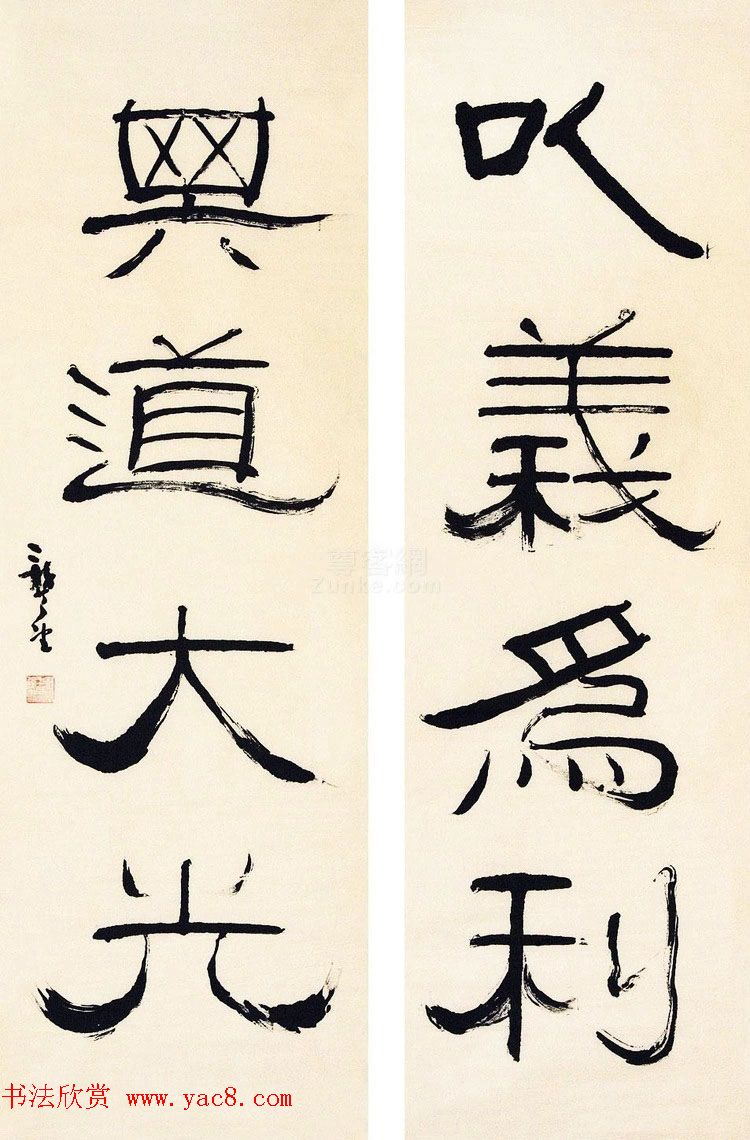 以義爲利
其道大光
龔望
尊客網
Zunke.com
书法欣赏 www.yac8.com